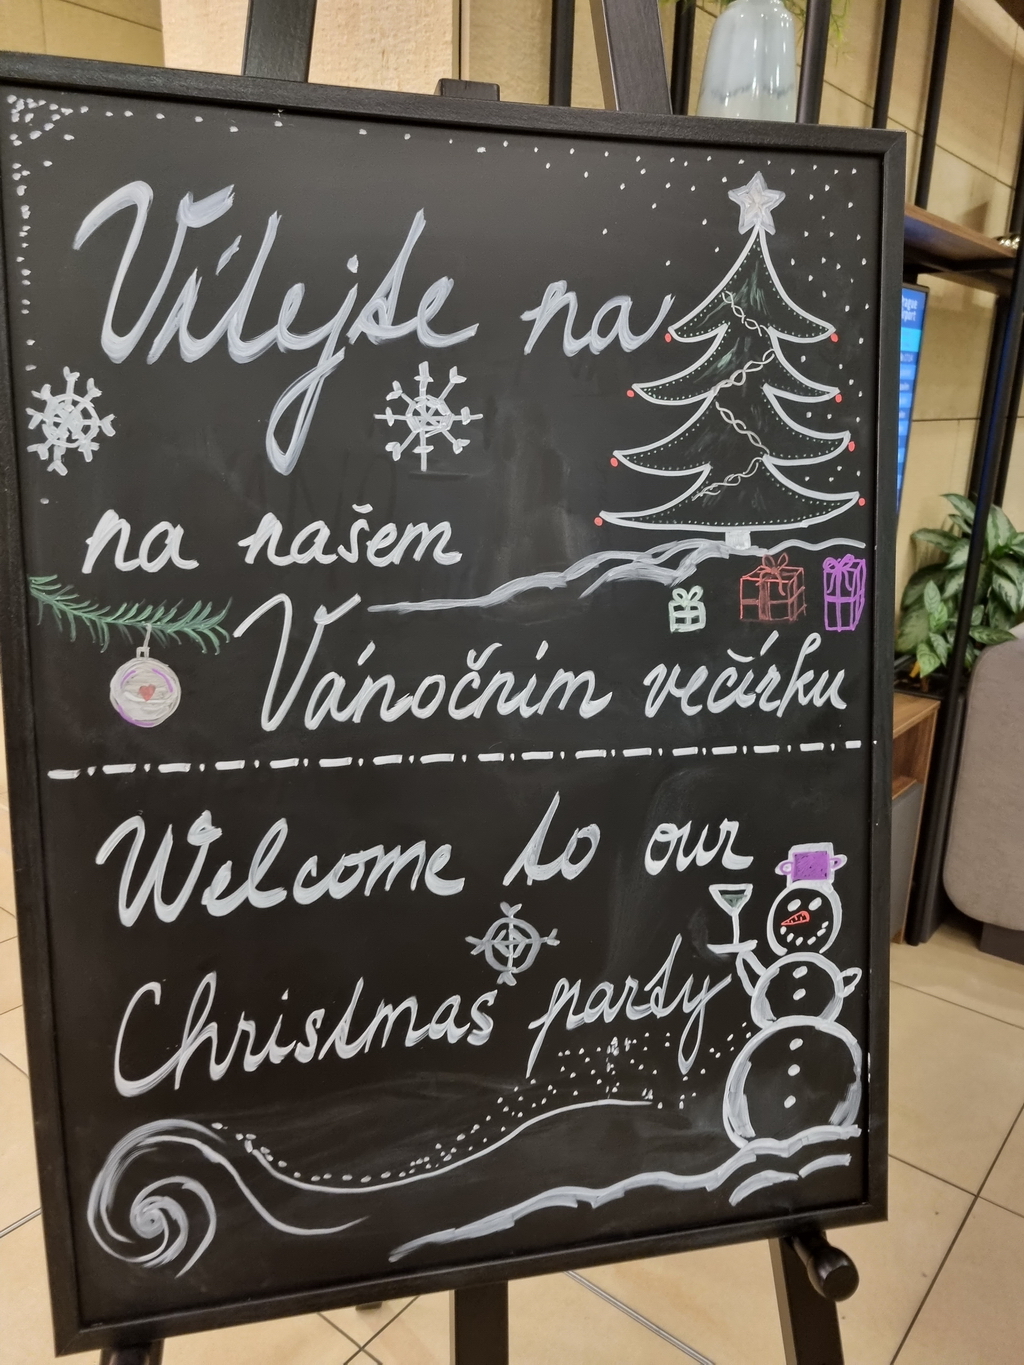 Vítejte na
na našem
Vánočním večírku
Welcome to our
Christmas party